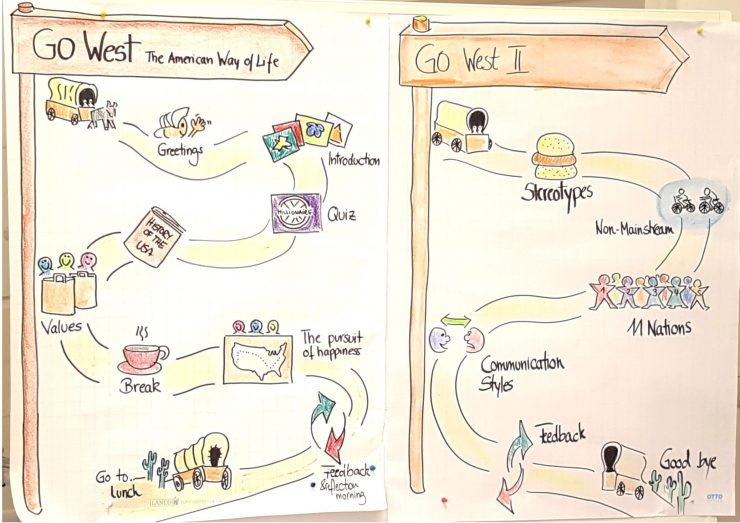 Go West The American Way of Life
Greetings
Introduction
MILLIONAIRE
Quiz
HISTORY
OF THE
USA
Values
Break
The pursuit
of happiness
Feedback
& reflection
morning
Go to...
lunch
Go West II
Stereotypes
Non-Mainstream
1 2 3 4 5
11 Nations
Communication
Styles
Feedback
Good bye
OTTO